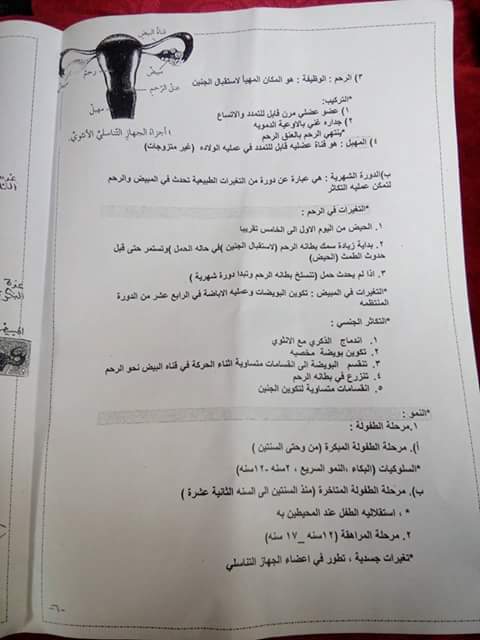 قناة البيض
مبيض
رحم
عنق الرحم
مهبل
أجزاء الجهاز التناسلي الأنثوي
٣) الرحم : الوظيفة : هو المكان المهيأ لاستقبال الجنين
*التركيب:
١) عضو عضلي مرن قابل للتمدد والاتساع
٢) جداره غني بالاوعية الدمويه
*ينتهي الرحم بالعنق الرحم
٤) المهبل : هو قناة عضليه قابل للتمدد في عمليه الولاده (غير متزوجات)
ب)الدورة الشهرية : هي عبارة عن دورة من التغيرات الطبيعية تحدث في المبيض والرحم
لتمكن عمليه التكاثر
*التغيرات في الرحم :
١. الحيض من اليوم الاول الى الخامس تقريبا
٢. بداية زيادة سمك بطانه الرحم (لاستقبال الجنين )(في حاله الحمل )وتستمر حتى قبل
حدوث الطمث (الحيض)
٣. اذا لم يحدث حمل (تنسلخ بطانه الرحم وتبدا دورة شهرية )
*التغيرات في المبيض : تكوين البويضات وعمليه الاباضة في الرابع عشر من الدورة
المنتظمه
*التكاثر الجنسي :
١. اندماج الذكري مع الانثوي
٢. تكوين بويضة مخصبه
٣. تنقسم البويضة الى انقسامات متساوية اثناء الحركة في قناه البيض نحو الرحم
٤. تنزرع في بطانه الرحم
٥. انقسامات متساوية لتكوين الجنين
*النمو :
١.مرحلة الطفولة :
أ). مرحلة الطفولة المبكرة (من وحتى السنتين )
*السلوكيات (البكاء ،النمو السريع ، ٢سنه -١٢سنه)
ب). مرحلة الطفولة المتاخرة (منذ السنتين الى السنه الثانية عشرة )
* ، استقلاليه الطفل عند المحيطين به
٢. مرحلة المراهقة (١٢سنه _ ١٧ سنه)
*تغيرات جسدية ، تطور في اعضاء الجهاز التناسلي
-٦-